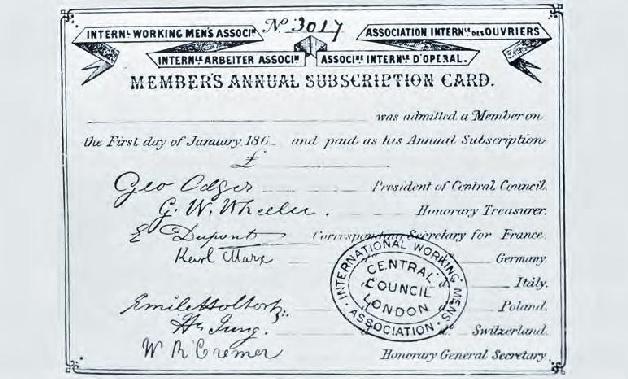 No. 3017
INTERNL. WORKING MEN'S ASSOCIN.
ASSOCIATION INTERNLE. DES OUVRIERS
INTERNLE. ARBEITER ASSOCIN.
ASSOCINE. INTERNLE. D'OPERAI.
MEMBER'S ANNUAL SUBSCRIPTION CARD.
was admitted a Member on
the First day of January, 186 and paid as his Annual Subscription
£
Geo Odger President of Central Council.
G. W. Wheeler. Honorary Treasurer.
E Dupont Corresponding Secretary for France.
Karl Marx Germany
Italy.
Emile Holtorp. Poland.
Hn Jung. Switzerland.
W R Cremer Honorary General Secretary.
INTERNATIONAL WORKING MENS ASSOCIATION
CENTRAL
COUNCIL
LONDON